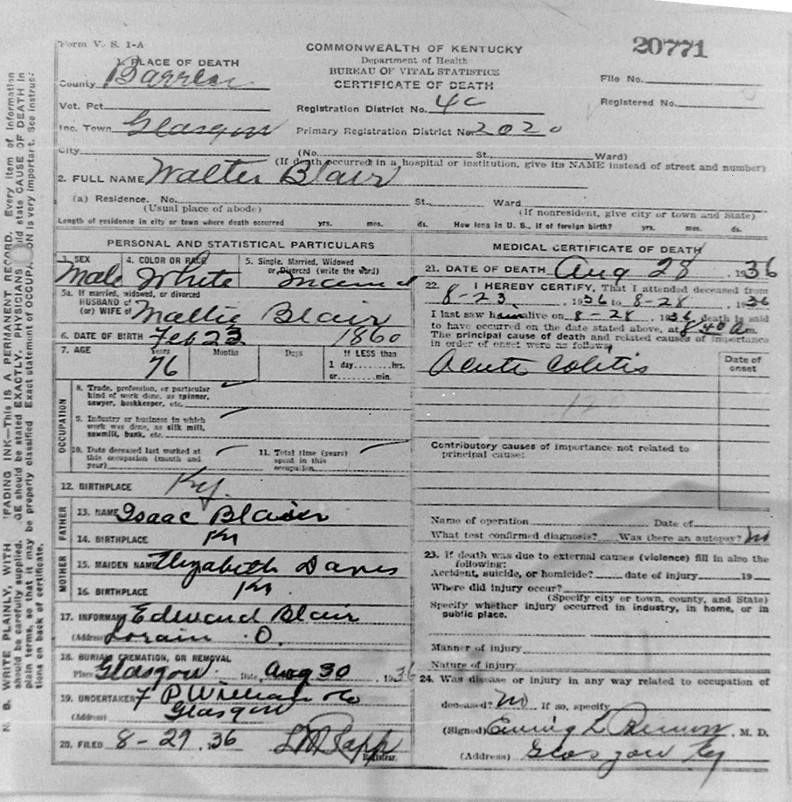 Form V. S. 1-A
COMMONWEALTH OF KENTUCKY
Department of Health
BUREAU OF VITAL STATISTICS
CERTIFICATE OF DEATH
20771
File No.
Registered No.
1. PLACE OF DEATH
County Barren
Vot. Pct.
Inc. Town Glasgow
City
Registration District No. 40
Primary Registration District No. 2020
(No. St., Ward)
(If death occurred in a hospital or institution, give its NAME instead of street and number)
2. FULL NAME Walter Blair
(a) Residence. No. St., Ward
(Usual place of abode) (If nonresident, give city or town and State)
Length of residence in city or town where death occurred yrs. mos. ds. How long in U. S., if of foreign birth? yrs. mos. ds.
PERSONAL AND STATISTICAL PARTICULARS
3. SEX 4. COLOR OR RACE 5. Single, Married, Widowed
or Divorced (write the word)
Male White Married
5a. If married, widowed, or divorced
HUSBAND of
(or) WIFE of Mallie Blair
6. DATE OF BIRTH Feb 23 1860
7. AGE Years Months Days If LESS than
76 1 day......hrs.
or......min.
OCCUPATION
8. Trade, profession, or particular
kind of work done, as spinner,
sawyer, bookkeeper, etc.
9. Industry or business in which
work was done, as silk mill,
sawmill, bank, etc.
10. Date deceased last worked at
this occupation (month and
year)
11. Total time (years)
spent in this
occupation
12. BIRTHPLACE Ky.
FATHER
13. NAME Isaac Blair
14. BIRTHPLACE Ky
MOTHER
15. MAIDEN NAME Elizabeth Davis
16. BIRTHPLACE Ky
17. INFORMANT Edward Blair
(Address) Lorain O.
18. BURIAL, CREMATION, OR REMOVAL
Place Glasgow Date Aug 30 1936
19. UNDERTAKER F P
(Address) Glasgow
20. FILED 8-29, 36
Registrar.
MEDICAL CERTIFICATE OF DEATH
21. DATE OF DEATH Aug 28, 1936
22. I HEREBY CERTIFY, That I attended deceased from
8-23, 1936 to 8-28, 1936
I last saw him alive on 8-28, 1936, death is said
to have occurred on the date stated above, at 8:40 a.m.
The principal cause of death and related causes of importance
in order of onset were as follows:
Date of
onset
Acute Colitis
Contributory causes of importance not related to
principal cause:
Name of operation Date of
What test confirmed diagnosis? Was there an autopsy? No
23. If death was due to external causes (violence) fill in also the
following:
Accident, suicide, or homicide? date of injury 19
Where did injury occur?
(Specify city or town, county, and State)
Specify whether injury occurred in industry, in home, or in
public place.
Manner of injury
Nature of injury
24. Was disease or injury in any way related to occupation of
deceased? No. If so, specify
(Signed) M. D.
(Address) Glasgow Ky
N. B. WRITE PLAINLY, WITH FADING INK—This is A PERMANENT RECORD. Every item of information
should be carefully supplied. GE should be stated EXACTLY. PHYSICIANS ld state CAUSE OF DEATH in
plain terms, so that it may be properly classified. Exact statement of OCCUPA ON is very important. See instruc-
tions on back of certificate.